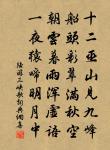 十二巫山見九峰
船頭彩翠滿秋空
朝雲暮雨渾虛語
一夜猿啼明月中
陸游三峽歌詞典網書